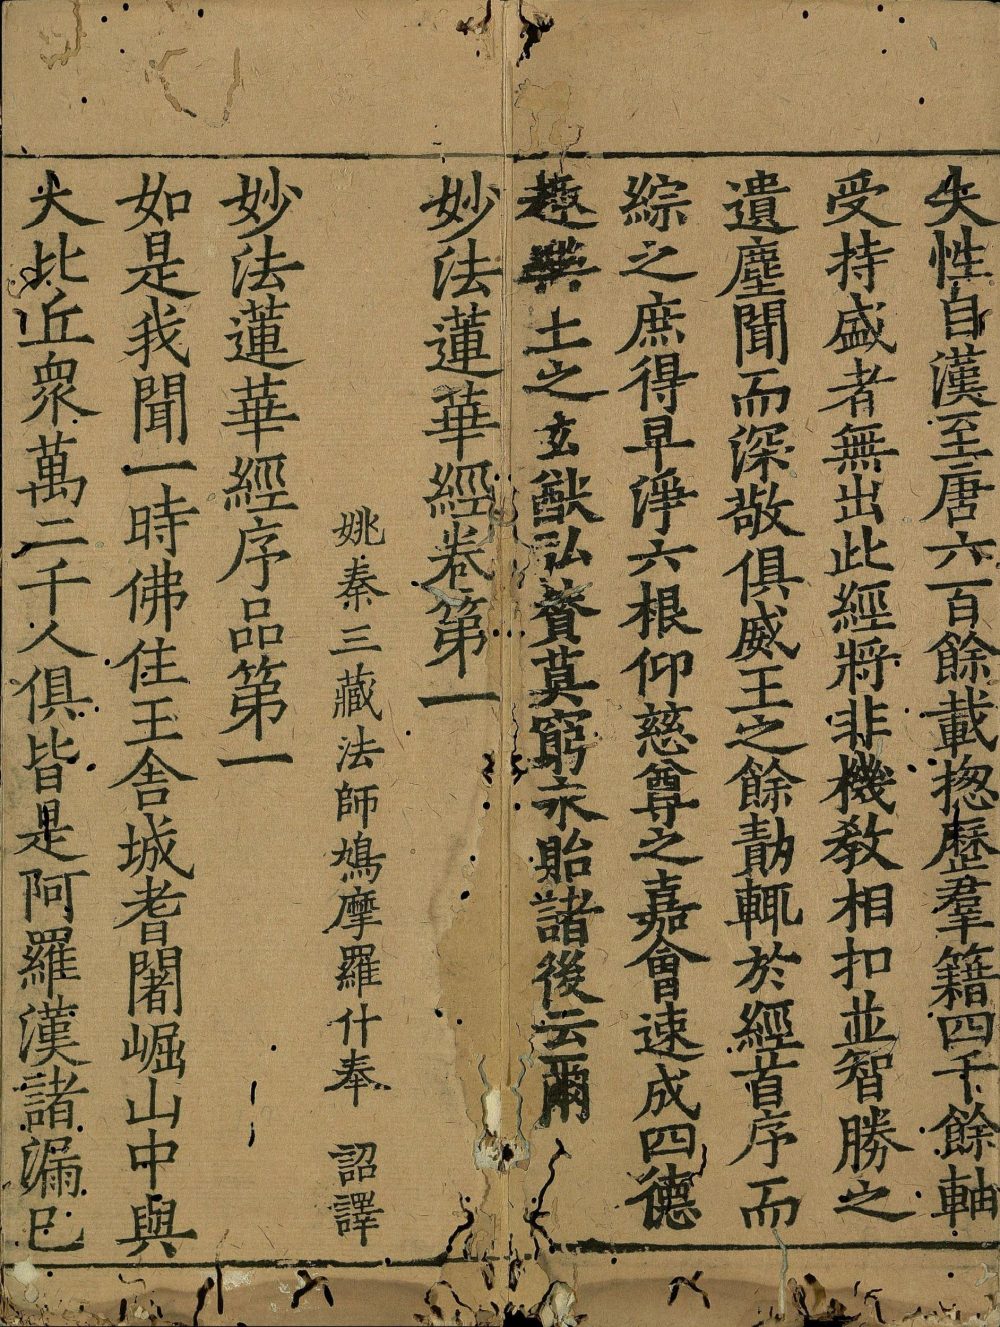 失性自漢至唐六百餘載揔歷羣籍四千餘軸
受持盛者無出此經將非機教相扣並智勝之
遺塵聞而深敬俱威王之餘勣輒於經首序而
綜之庶得早淨六根仰慈尊之嘉會速成四德
趣樂土之玄猷弘賛莫窮永貽諸後云爾
妙法蓮華經卷第一
姚秦三藏法師鳩摩羅什奉 詔譯
妙法蓮華經序品第一
如是我聞一時佛住王舍城耆闍崛山中與
大比丘衆萬二千人俱皆是阿羅漢諸漏已